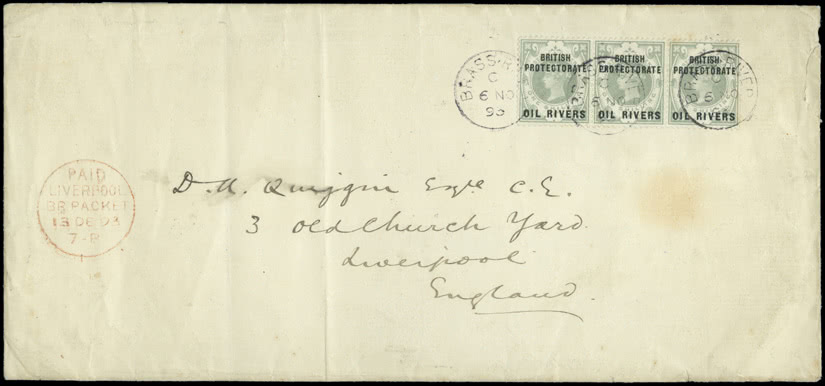 BRITISH PROTECTORATE OIL RIVERS
BRITISH PROTECTORATE OIL RIVERS
BRITISH PROTECTORATE OIL RIVERS
BRASS RI
C
6 NO
93
6 NO
BRASS RIVER
6
PAID
LIVERPOOL
BR. PACKET
13 DE 93
7-R
D. A. Quiggin Esqre C.E.
3 Old Church Yard
Liverpool
England.